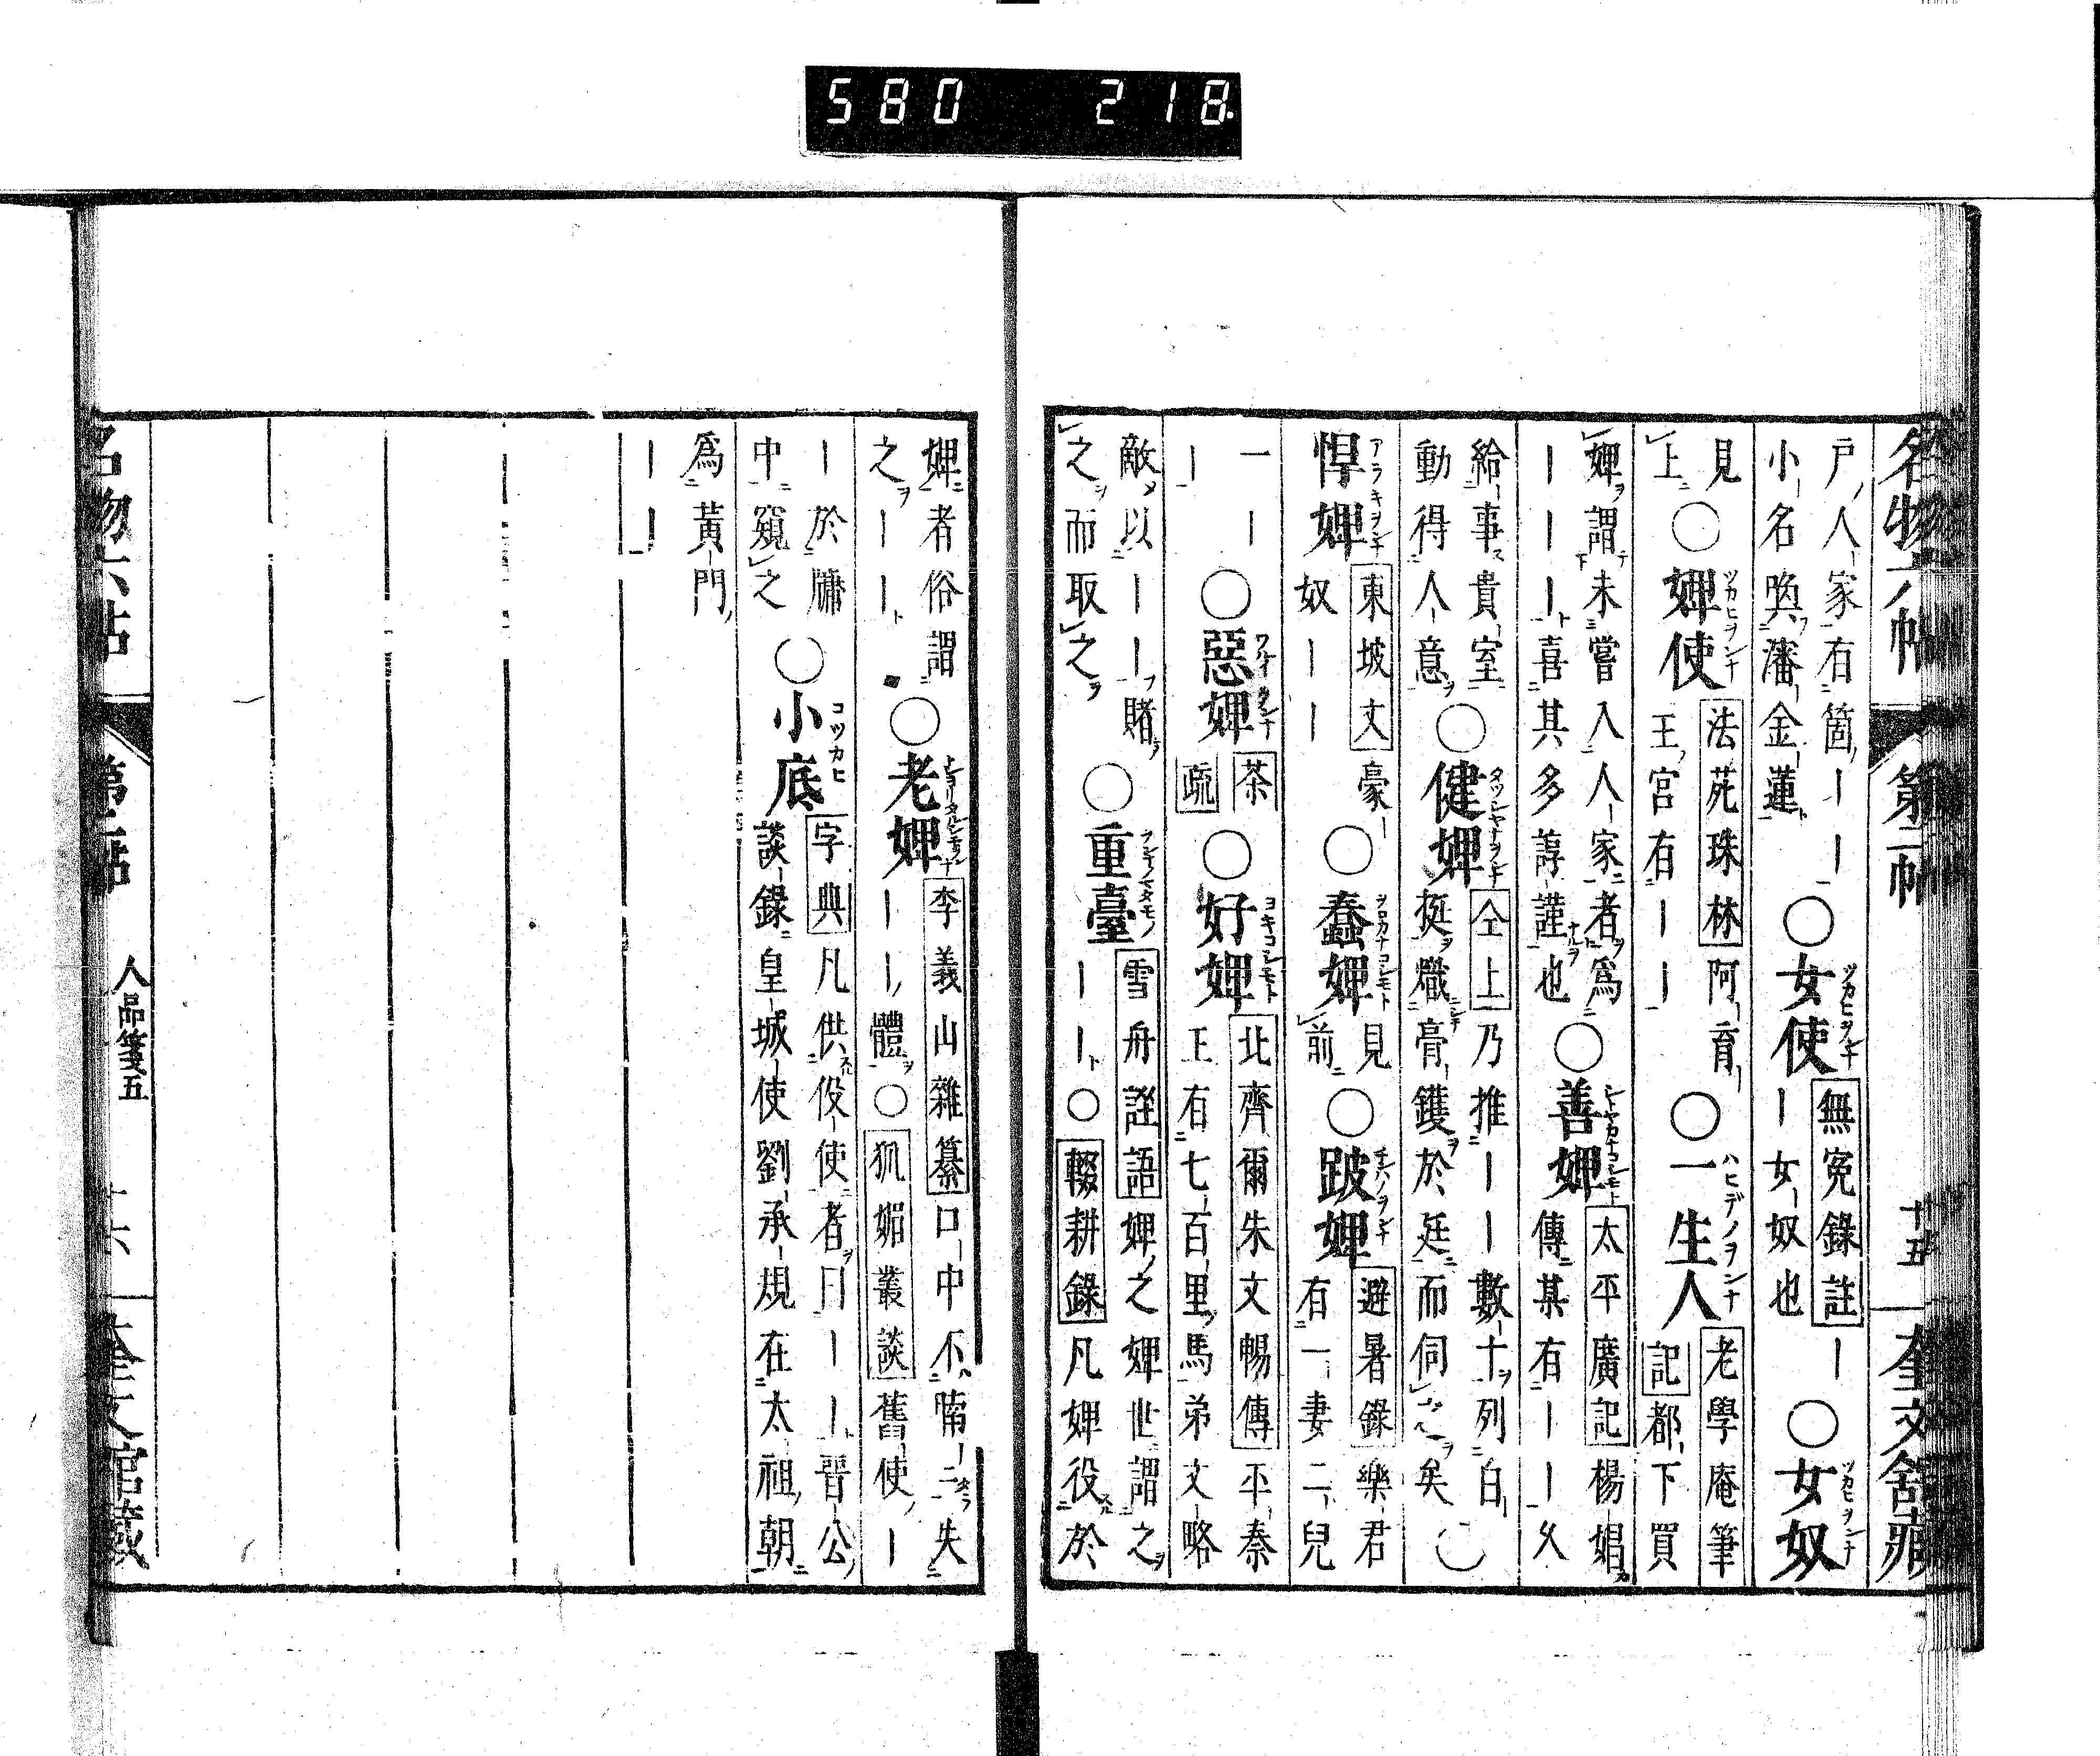 580 218.
名物六帖 第二帖 十五 奎文舘藏
戸人家有箇｜｜
小名喚潘金蓮
○女使 無寃錄註 ｜
｜女奴也
○女奴
見
上
○婢使 法苑珠林 阿育
王宮有｜｜
○一生人 老學庵筆
記 都下買
婢謂未嘗入人家者爲
｜｜｜喜其多諄謹也
○善婢 太平廣記 楊娼
傳某有｜｜久
給事貴室
動得人意
○健婢 仝上 乃推｜｜數十列白
挺熾膏鑊於廷而伺之矣
○
悍婢 東坡文 豪
奴｜｜
○蠢婢 見
前
○跛婢 避暑錄 樂君
有一妻二兒
一｜
｜
○惡婢 茶
疏
○好婢 北齊爾朱文暢傳 平秦
王有七百里馬弟文略
敵以｜｜賭
之而取之
○重臺 雪舟誆語 婢之婢世謂之
｜｜○輟耕錄 凡婢役於
婢者俗謂
之｜｜
○老婢 李義山雜纂 口中不喃二失
｜｜體○狐媚叢談 舊使｜
｜於牖
中窺之
○小底 字典 凡供役使者曰｜｜晉公
談錄皇城使劉承規在太祖朝
爲黃門
｜｜
名物六帖 第二帖 人品箋五 十六 奎文舘藏